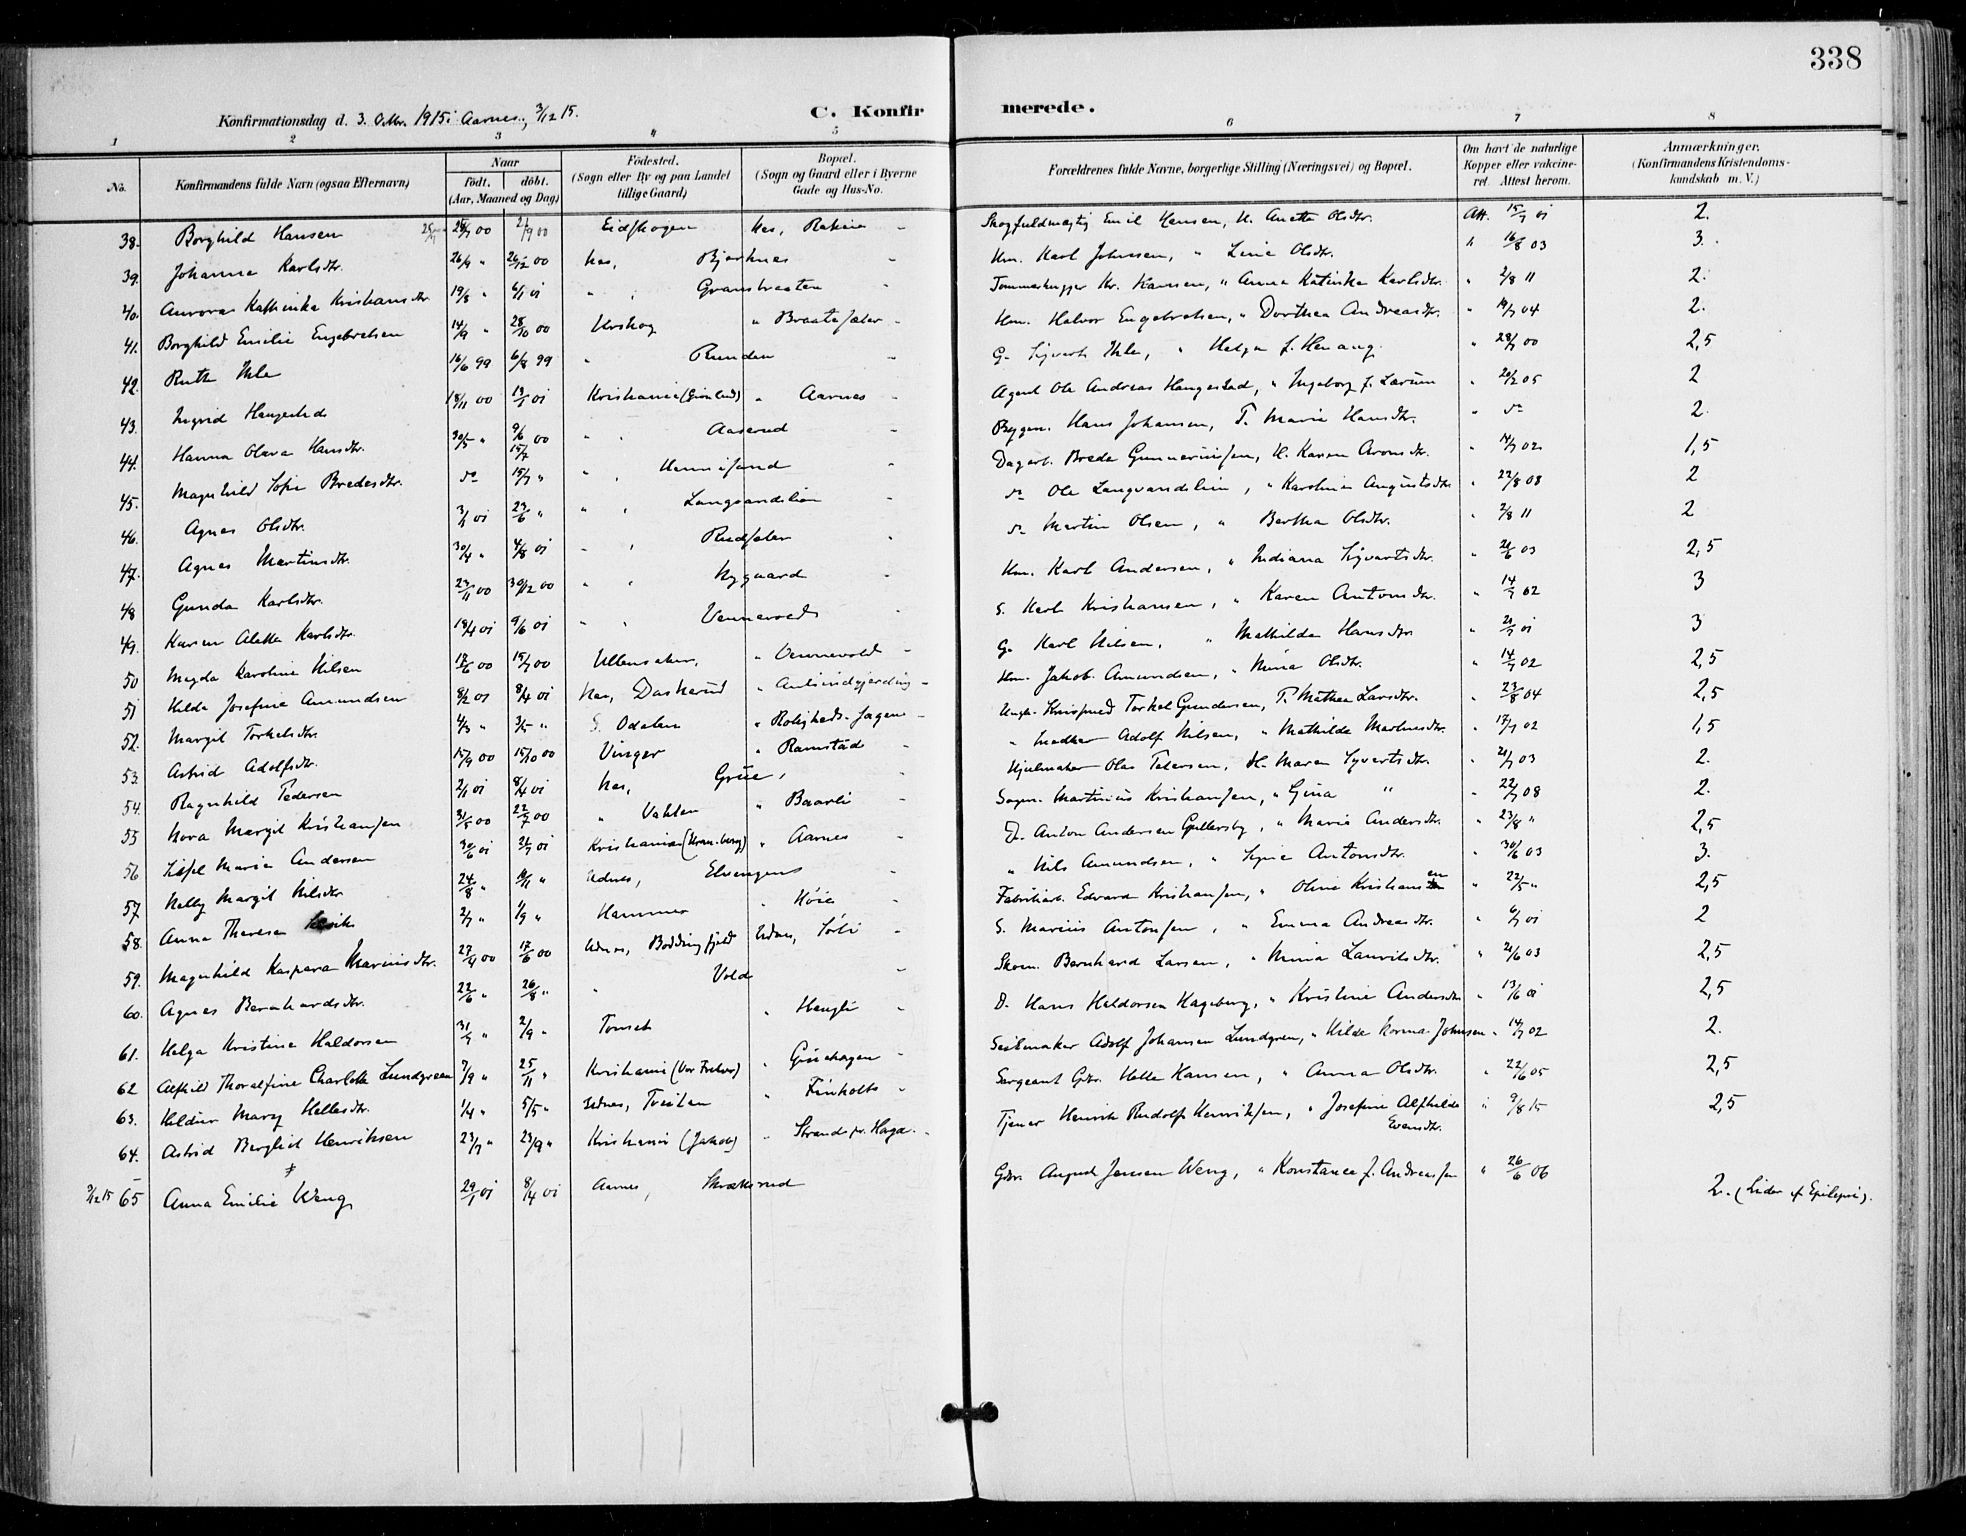 338
Konfirmationsdag d. 3. Oktr. 1915 i Aarnes, 3/12 15. C. Konfirmerede.
1 2 3 4 5 6 7 8
No. Konfirmandens fulde Navn (ogsaa Efternavn) Naar födt. döbt. (Aar, Maaned og Dag) Födested. (Sogn eller By og paa Landet tillige Gaard) Bopæl. (Sogn og Gaard eller i Byerne Gade og Hus-No. Forældrenes fulde Navne, borgerlige Stilling (Næringsvei) og Bopæl. Om havt de naturlige Kopper eller vakcineret. Attest herom. Anmærkninger. (Konfirmandens Kristendomskundskab m. V.)
38. Borghild Hansen 00 2/9 00 Eidskogen Nes, Emil Hansen, H. Anette Olsdtr. Att. 15/7 01 2.
39. Johanna Karlsdtr. 26/9 " 26/12 00 Nes, Bjerknes Hm. Karl Johnsen, " Line Olsdtr. " 16/8 03 3.
40. Aurora Kathinka Kristiansdtr. 19/8 " 6/1 01 " Granbraaten Tømmerhugger Kr. Hansen, " Anna Katinka Karlsdtr. " 2/8 11 2.
41. Borghild Emilie Engebretsen 14/9 " 28/10 00 Urskog " Hm. Halvor Engebretsen, " Dorthea Andreasdtr. " 19/7 04 2.
42. Ruth Ihle 16/6 99 6/8 99 " Runden G. Syvert Ihle, " Helga f. Henaug " 28/7 00 2,5
43. Ingrid Haugestad 18/11 00 13/1 01 Kristiania (Grønland) " Aarnes Agent Ole Andreas Haugestad, " Ingeborg f. Lærum " 20/2 05 2
44. Hanna Olava Hansdtr. 30/5 " 9/6 00 " Aaserud Bygm. Hans Johansen, T. Marie Hansdtr. " do 2.
45. Magnhild Sofie Bredesdtr. do 15/7 " " Dagarb. Brede Gunneriussen, H. Karen Aronsdtr. " 14/7 02 1,5
46. Agnes Olsdtr. 3/1 01 23/6 " " Langvandslien do Ole Langvandslien, " Karoline Augustsdtr " 22/8 08 2
47. Agnes Martinsdtr. 30/4 " 4/8 01 " do Martin Olsen, " Berthea Olsdtr. " 2/8 11 2
48 Gunda Karlsdtr. 23/11 00 30/12 00 " Nygaard Hm. Karl Andersen, " Indiana Syvertsdtr. " 21/6 03 2,5
49. Karen Alette Karlsdtr. 18/4 01 9/6 01 " Vennevold S. Karl Kristiansen, " Karen Antonsdtr. " 14/7 02 3
50 Magda Karoline Nilsen 17/6 00 15/7 00 Ullensaker, " Vennevold G. Karl Nilsen, " Mathilde Hansdtr " 21/7 01 3
51 Hilda Josefine Amundsen 8/2 01 8/4 01 Nes, Daskerud " Hm. Jakob Amundsen, " Mina Olsdtr. " 14/7 02 2,5
52. Margit Torkelsdtr. 4/3 " 3/5 " S. Odalen " Torkel Gundersen, T. Mathea Larsdtr. " 23/8 04 2,5
53. Astrid Adolfsdtr. 15/9 00 15/10 00 Vinger " Ramstad " Adolf Nilsen, " Mathilde Martinsdtr. " 17/7 02 1,5
54. Ragnhild Pedersen 2/1 01 8/4 01 Nes, Grue, Hjulmaker Olas Petersen, H. Maren Syvertsdtr " 21/7 03 2.
55 Nora Margit Kristiansen 31/5 00 22/7 00 " Vakten " Baarli Martinius Kristiansen, " Gina " " 22/7 08 2.
56 Maria Andersen 30/6 01 21/7 01 Kristiania " Aarnes D. Anton Andersen Gullersby, " Maria Andersdtr. " 23/8 " 2,5
57. Nelly Margit Nilsdtr. 24/8 " " Udnes, Elvengens " Nils Amundsen, " Antonsdtr. " 30/6 03 3.
58. Anna Theresia 2/7 " 1/9 " Hammer " Høie Fabrikarb. Edvard Kristiansen, " Oline Kristiansen " 22/5 " 2,5
59. Magnhild Kaspara Mariusdtr. 27/4 00 17/6 00 Udnes, Boddingfjeld Udnes, Sørli S. Marius Antonsen, " Emma Andreasdtr. " 6/7 01 2
60. Agnes Bernhardsdtr. 22/6 " 26/8 " " Vold Skom. Bernhard Larsen, " Mina Lauritsdtr. " 21/6 03 2,5
61. Helga Kristine Haldorsen 31/7 " 2/9 " Tomset " Haugli D. Hans Haldorsen Hageberg, " Kristine Andersdtr " 13/6 01 2,5
62 Alfhild Thoralfine Charlotte Lundgreen 7/9 " 25/11 " Kristiania (Vor Frelser) " Gruehagen Seilmaker Adolf Johansen Lundgren, " Hilda Norma Johnsen " 14/7 02 2.
63. Hildur Mary Hellesdtr. 1/4 " 5/5 " Udnes, Tveiten " Finholts Sergeant Gbr. Helle Hansen, " Anna Olsdtr. " 22/6 05 2,5
64. Astrid Bergliot Henriksen 23/7 " 23/9 " Kristiania (Jakob) " Strand pr. Haga. Tjener Henrik Rudolf Henriksen, " Josefine Alfhilde Evensdtr. " 9/8 15 2,5
3/12 15 65 Anna Emilie Weng 29/1 01 8/4 01 Aarnes, Skrækerud Gbr. August Jensen Weng, " Konstance f. Andreasen " 26/6 06 2. (Lider af Epilepsi).